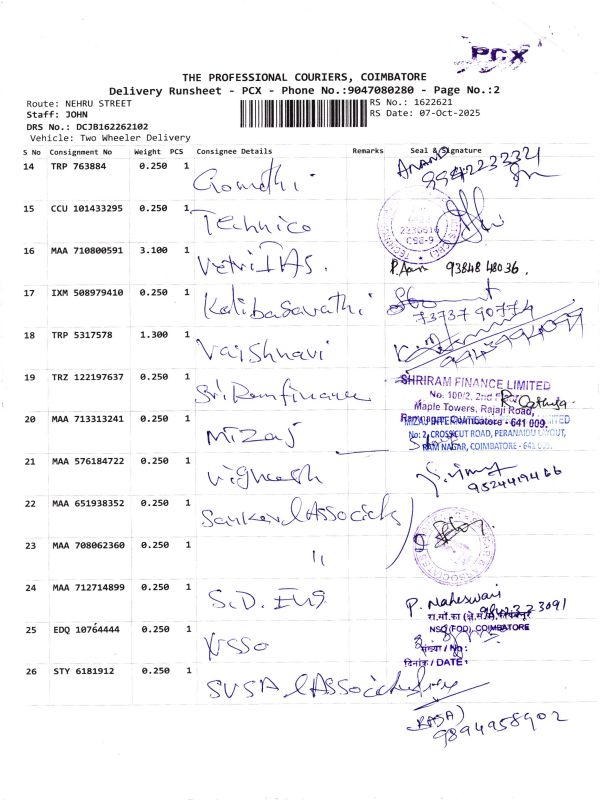 PCX
THE PROFESSIONAL COURIERS, COIMBATORE
Delivery Runsheet - PCX - Phone No.:9047080280 - Page No.:2
Route: NEHRU STREET RS No.: 1622621
Staff: JOHN RS Date: 07-Oct-2025
DRS No.: DCJB162262102
Vehicle: Two Wheeler Delivery
S No Consignment No Weight PCS Consignee Details Remarks Seal & Signature
14 TRP 763884 0.250 1 Gomathi ANAND
15 CCU 101433295 0.250 1 Technico
2230516
CBE-9
16 MAA 710800591 3.100 1 93848 48036.
17 IXM 508979410 0.250 1 Kalibasavathi
73737 90774
18 TRP 5317578 1.300 1 Vaishnavi
19 TRZ 122197637 0.250 1 Sri Ram finance
SHRIRAM FINANCE LIMITED
No: 100/2, 2nd
Maple Towers, Rajaji Road,
Coimbatore - 641 009.
20 MAA 713313241 0.250 1 Mizaj
No: 2, CROSSCUT ROAD, PERANAIDU LAYOUT,
RAM NAGAR, COIMBATORE - 641 009.
21 MAA 576184722 0.250 1 Vignesh
9524419466
22 MAA 651938352 0.250 1 Sankar & Associates
23 MAA 708062360 0.250 1 "
24 MAA 712714899 0.250 1 S.D. Eng
P. Maheswari
25 EDQ 10764444 0.250 1 NSSO
NSO (FOD), COIMBATORE
संख्या / No :
दिनांक / DATE :
26 STY 6181912 0.250 1 SVSA & Associates
(RAJA)
9894958902